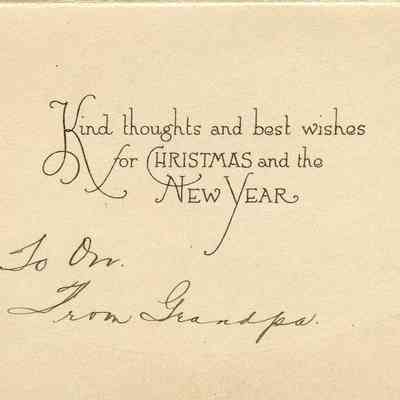 Kind thoughts and best wishes
for CHRISTMAS and the
NEW YEAR
To Orv.
From Grandpa.